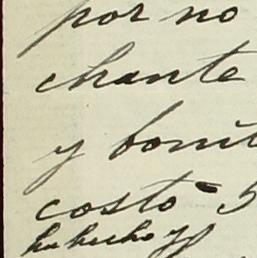 por no
chante
y bonit
costo - 5
ha hecho y